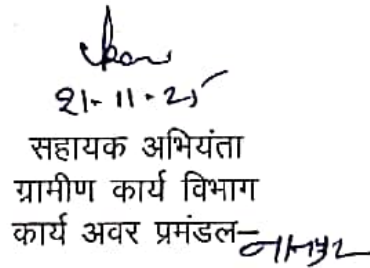 21-11-25
सहायक अभियंता
ग्रामीण कार्य विभाग
कार्य अवर प्रमंडल-